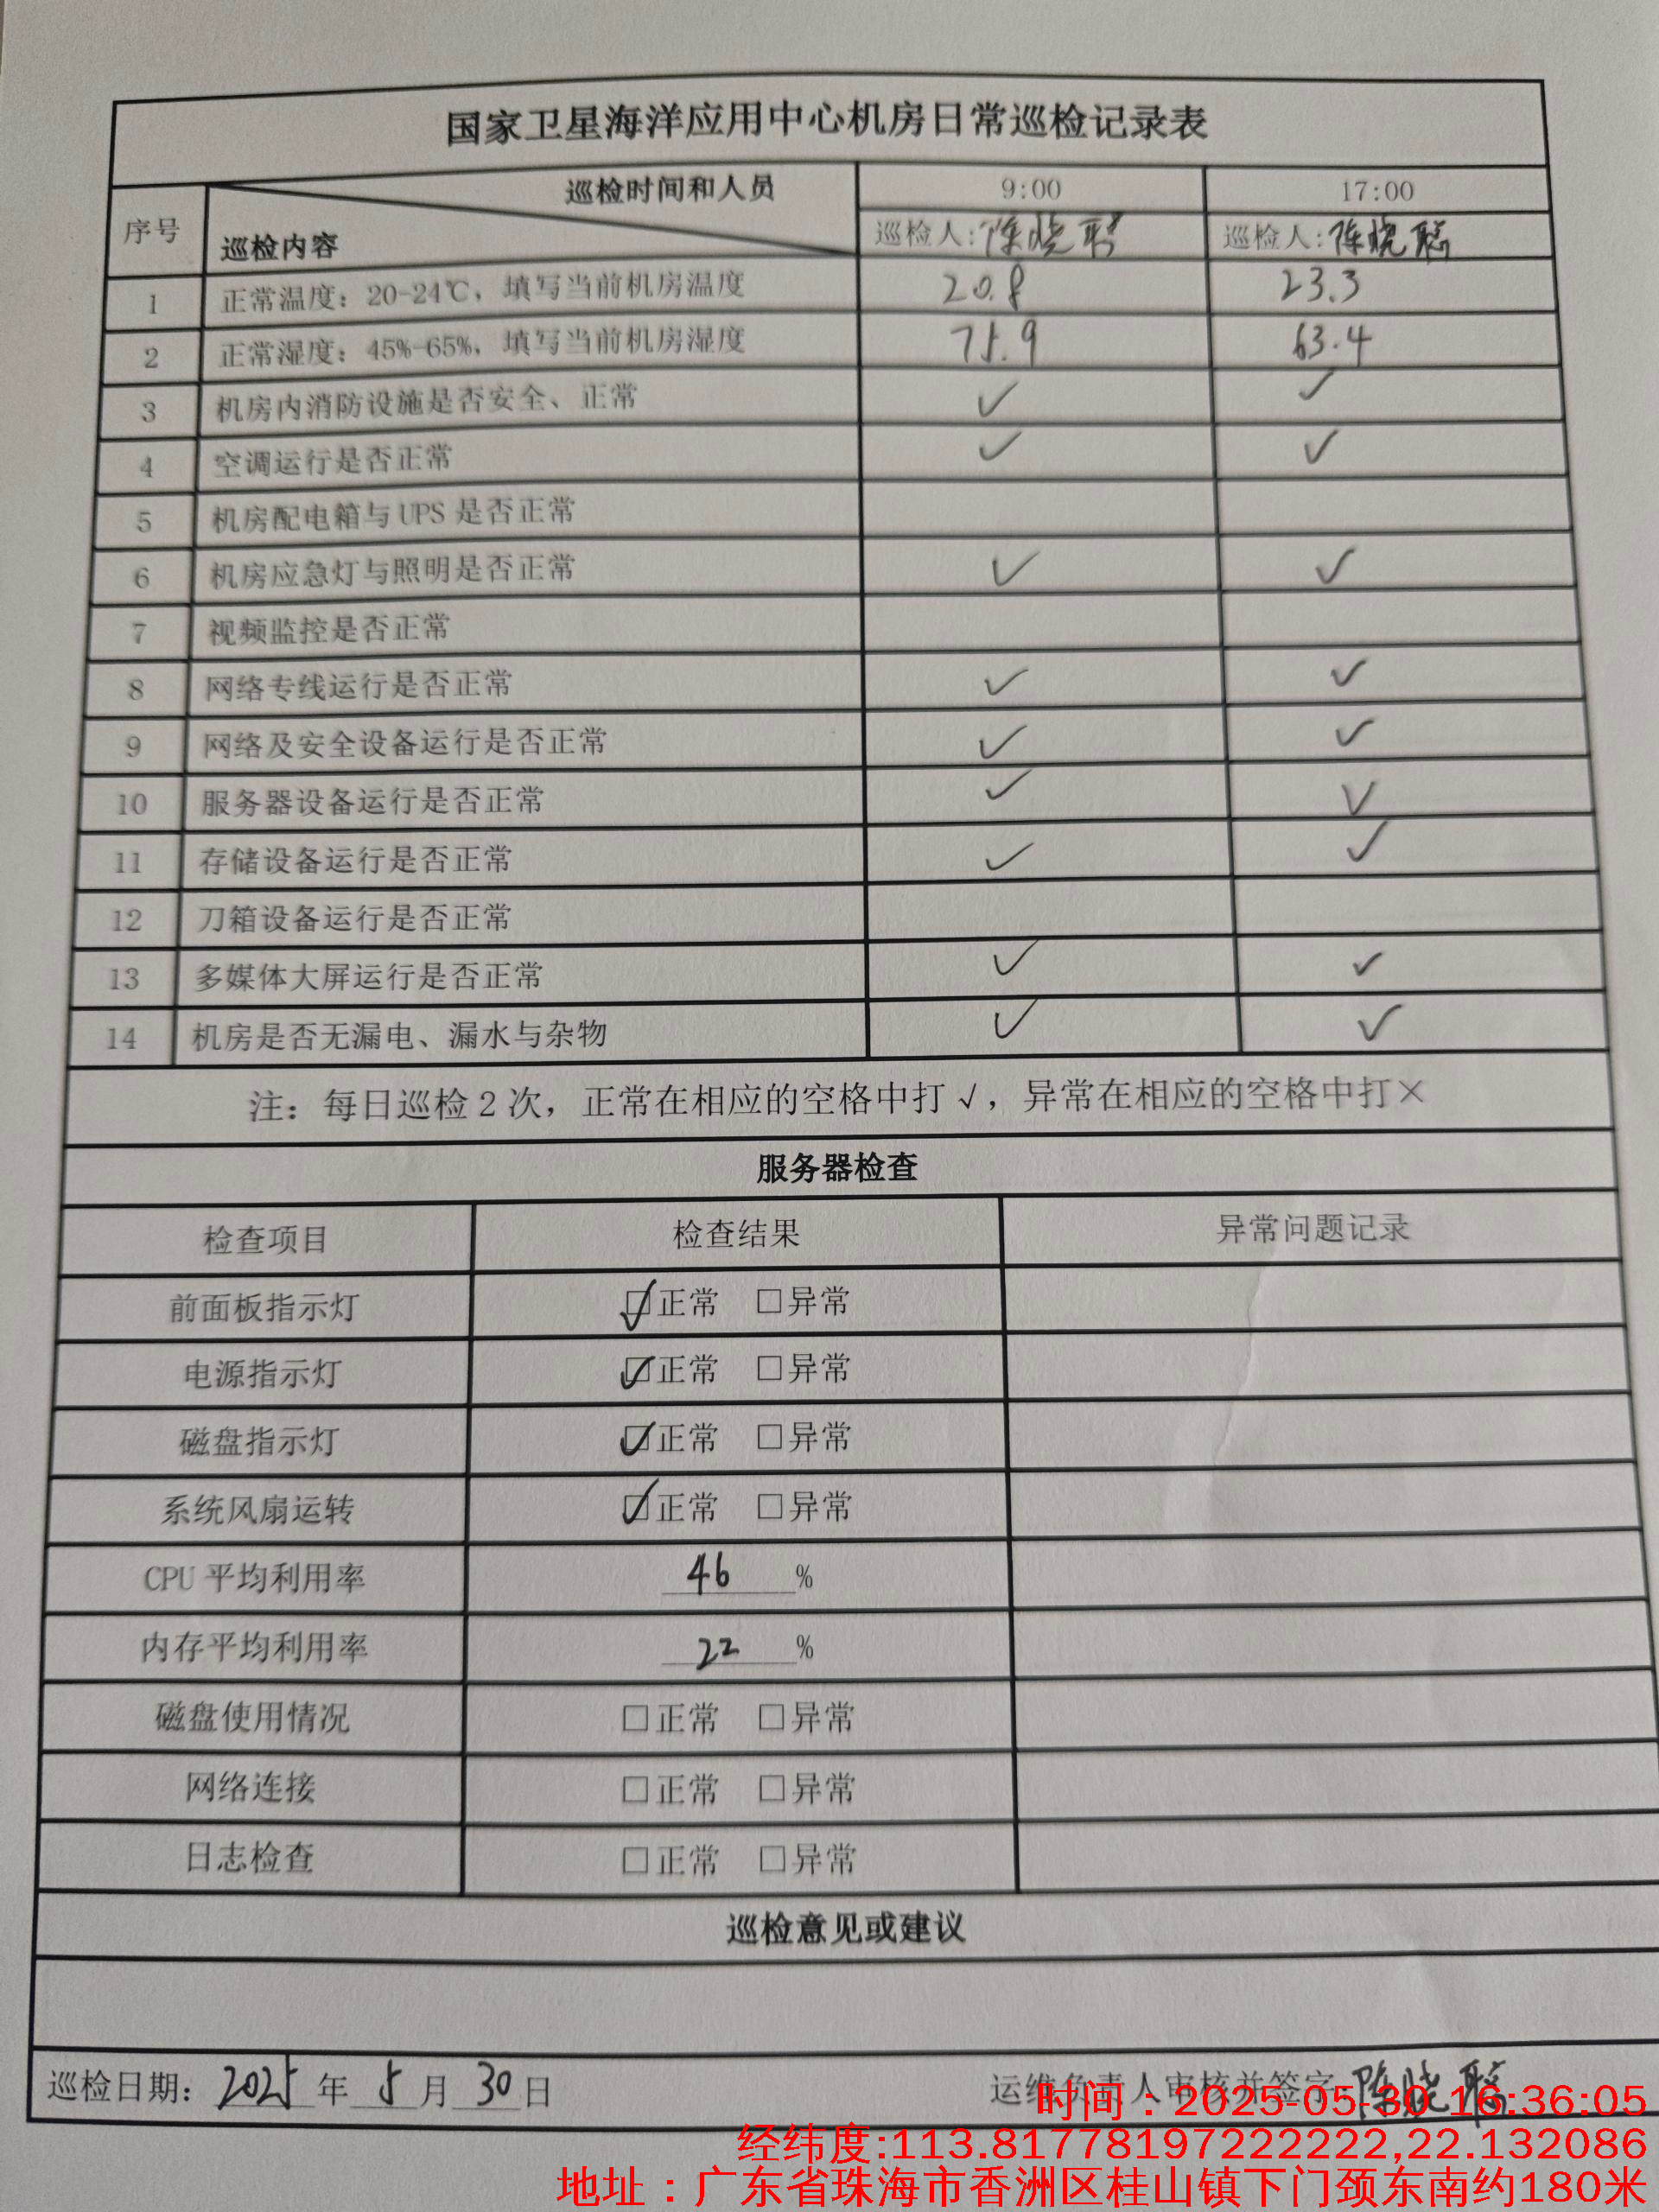 国家卫星海洋应用中心机房日常巡检记录表
序号 巡检时间和人员 巡检内容 9:00 17:00
巡检人:陈晓聪 巡检人:陈晓聪
1 正常温度：20-24℃，填写当前机房温度 20.8 23.3
2 正常湿度：45%-65%，填写当前机房湿度 75.9 63.4
3 机房内消防设施是否安全、正常 ✓ ✓
4 空调运行是否正常 ✓ ✓
5 机房配电箱与UPS是否正常
6 机房应急灯与照明是否正常 ✓ ✓
7 视频监控是否正常
8 网络专线运行是否正常 ✓ ✓
9 网络及安全设备运行是否正常 ✓ ✓
10 服务器设备运行是否正常 ✓ ✓
11 存储设备运行是否正常 ✓ ✓
12 刀箱设备运行是否正常
13 多媒体大屏运行是否正常 ✓ ✓
14 机房是否无漏电、漏水与杂物 ✓ ✓
注：每日巡检2次，正常在相应的空格中打√，异常在相应的空格中打×
服务器检查
检查项目 检查结果 异常问题记录
前面板指示灯 ☑正常 □异常
电源指示灯 ☑正常 □异常
磁盘指示灯 ☑正常 □异常
系统风扇运转 ☑正常 □异常
CPU平均利用率 46 %
内存平均利用率 22 %
磁盘使用情况 □正常 □异常
网络连接 □正常 □异常
日志检查 □正常 □异常
巡检意见或建议
巡检日期：2025年5月30日 运维负责人审核并签字：陈晓聪
时间：2025-05-30 16:36:05
经纬度:113.81778197222222,22.132086
地址：广东省珠海市香洲区桂山镇下门颈东南约180米